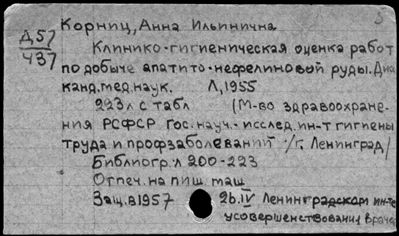 5
Д57
437
Корниц, Анна Ильинична
Клинико-гигиеническая оценка работ
по добыче апатито-нефелиновой руды. Дис
канд. мед. наук. Л, 1955
223л с табл (М-во здравоохране-
ния РСФСР Гос. науч.-исслед. ин-т гигиены
труда и профзаболеваний /г. Ленинград/
Библиогр. л 200-223
Отпеч. на пиш маш
Защ. в 1957 26.IV Ленинградском ин-те
усовершенствования враче